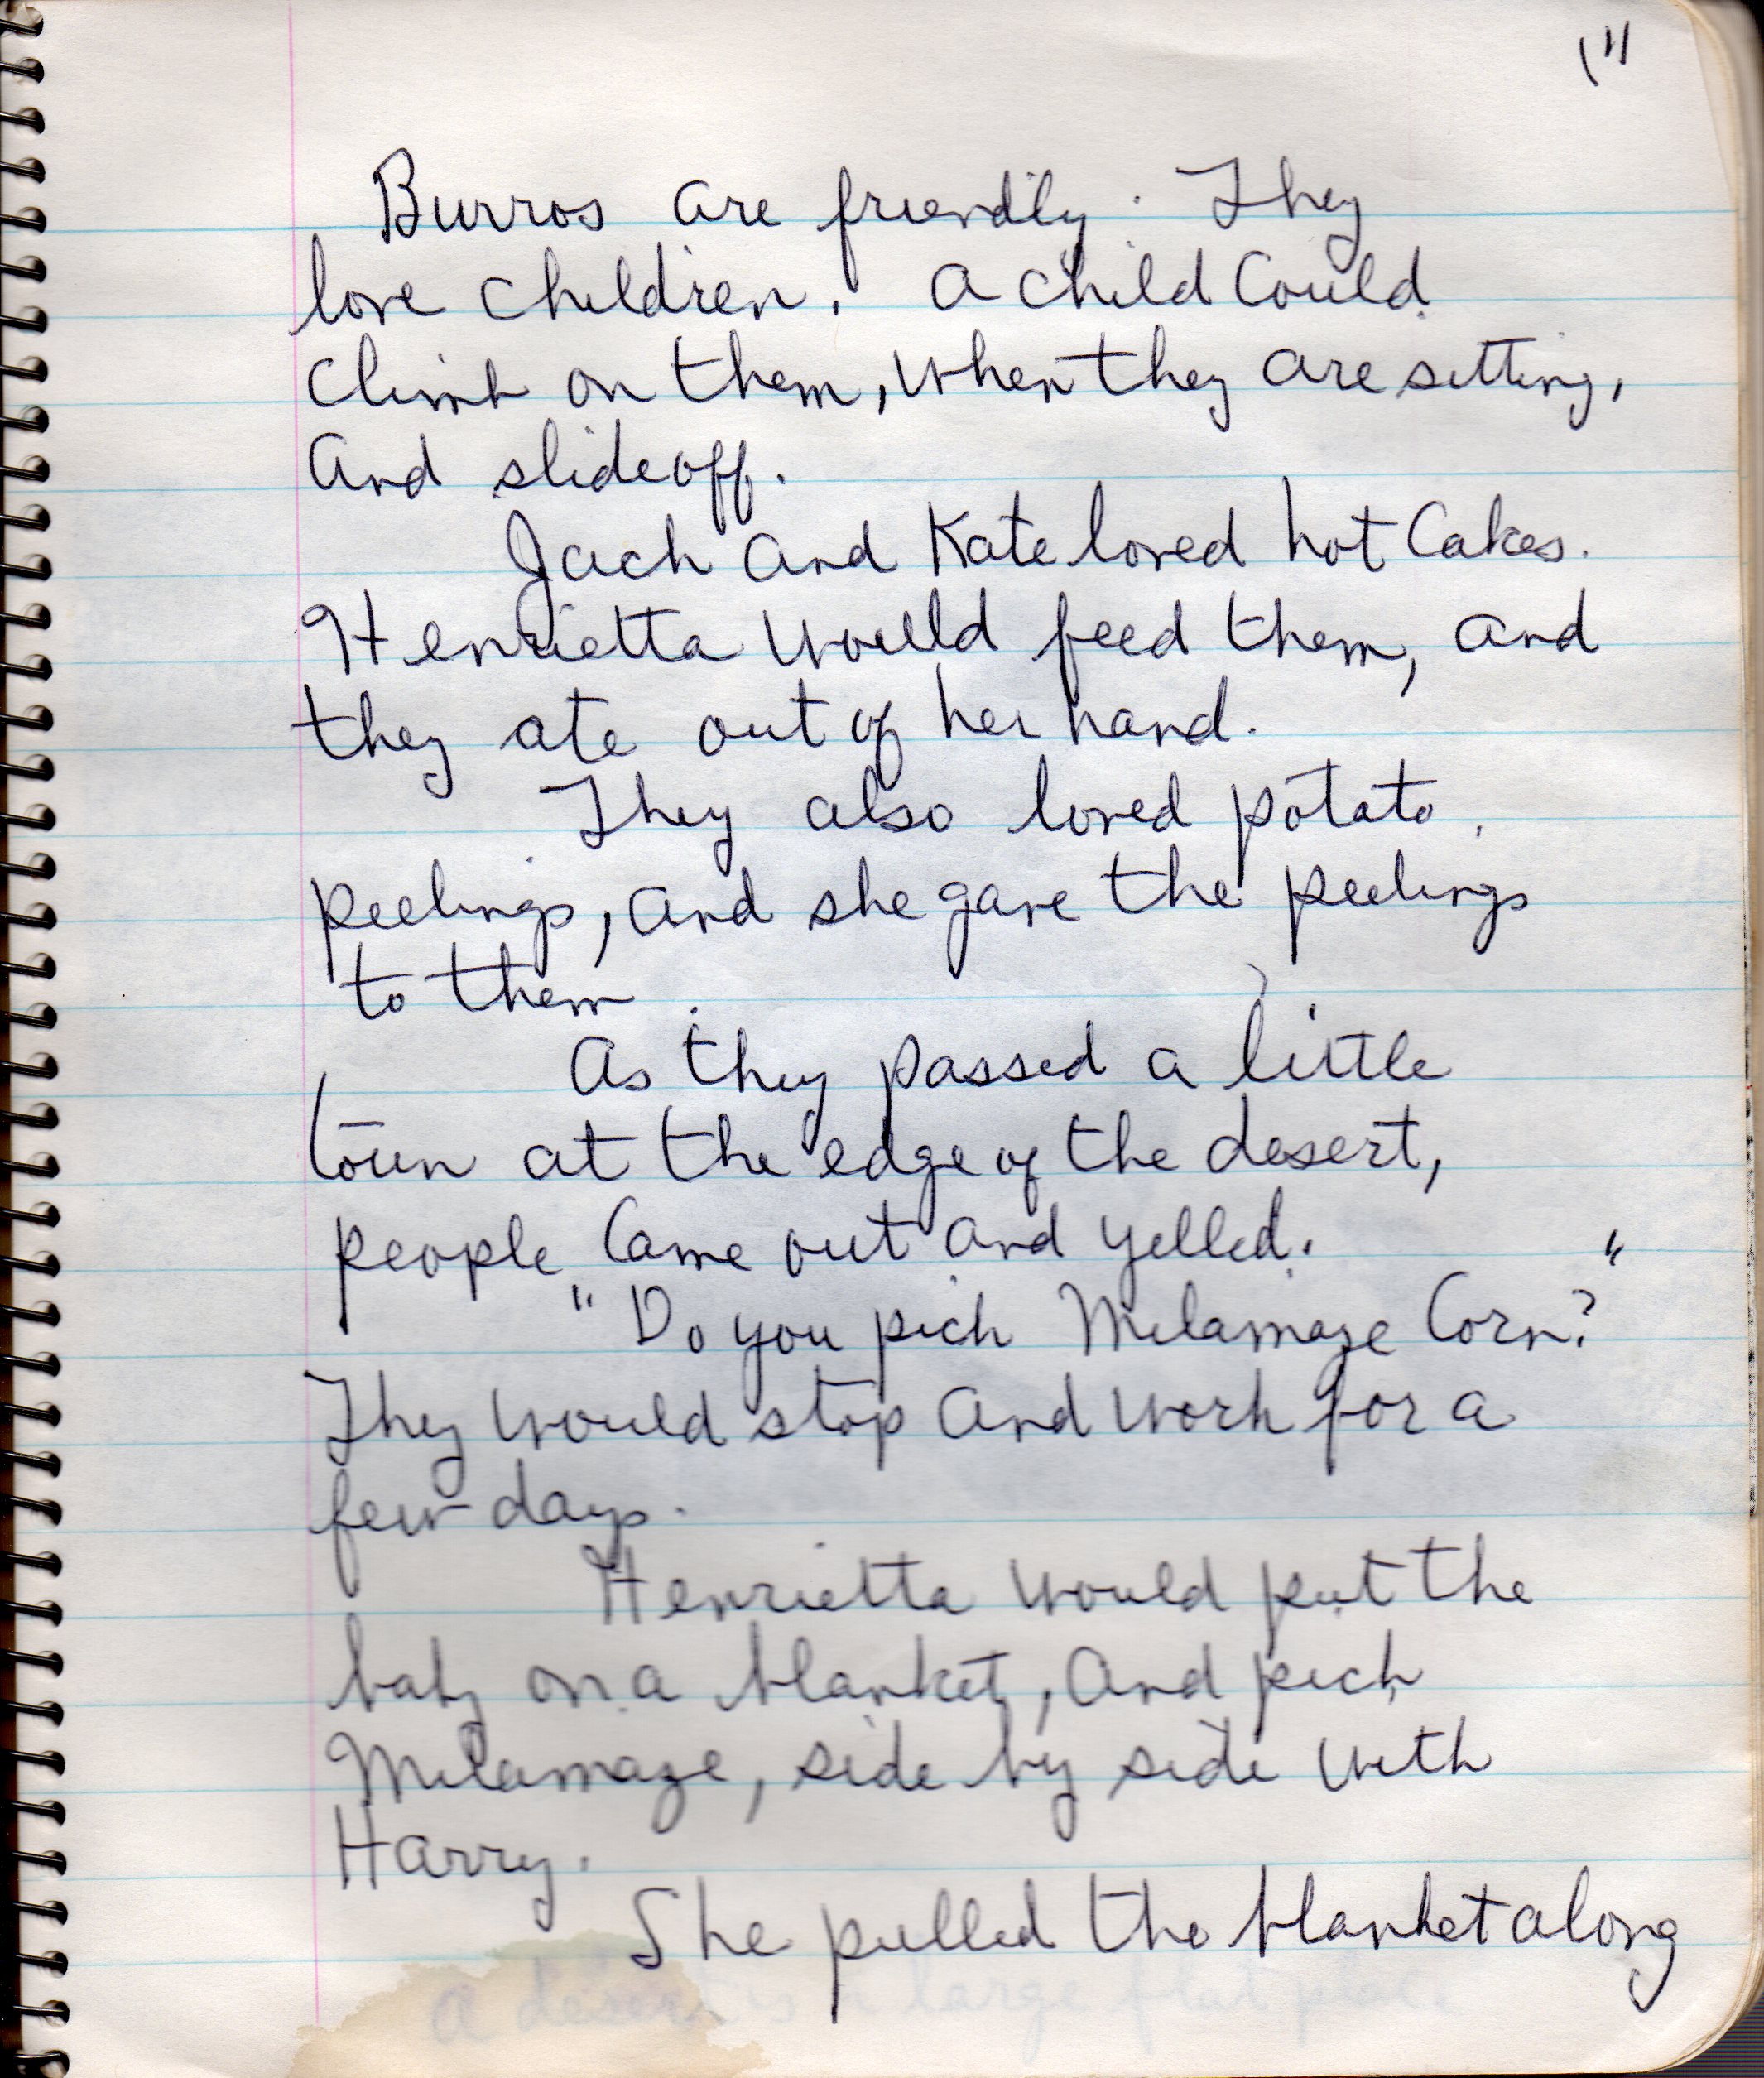 Burros are friendly. They
love children. A child Could
Climb on them, when they are sitting,
And slide off.
Jack And Kate loved hot Cakes.
Henrietta would feed them, and
they ate out of her hand.
They also loved potato
peelings, and she gave the peelings
to them.
As they passed a little
town at the edge of the desert,
people Came out and yelled.
"Do you pick Milamaze Corn?"
They would stop And work for a
few days.
Henrietta would put the
baby on a blanket, And pick
Milamaze, side by side with
Harry.
She pulled the blanket along
A desert is a large flat place